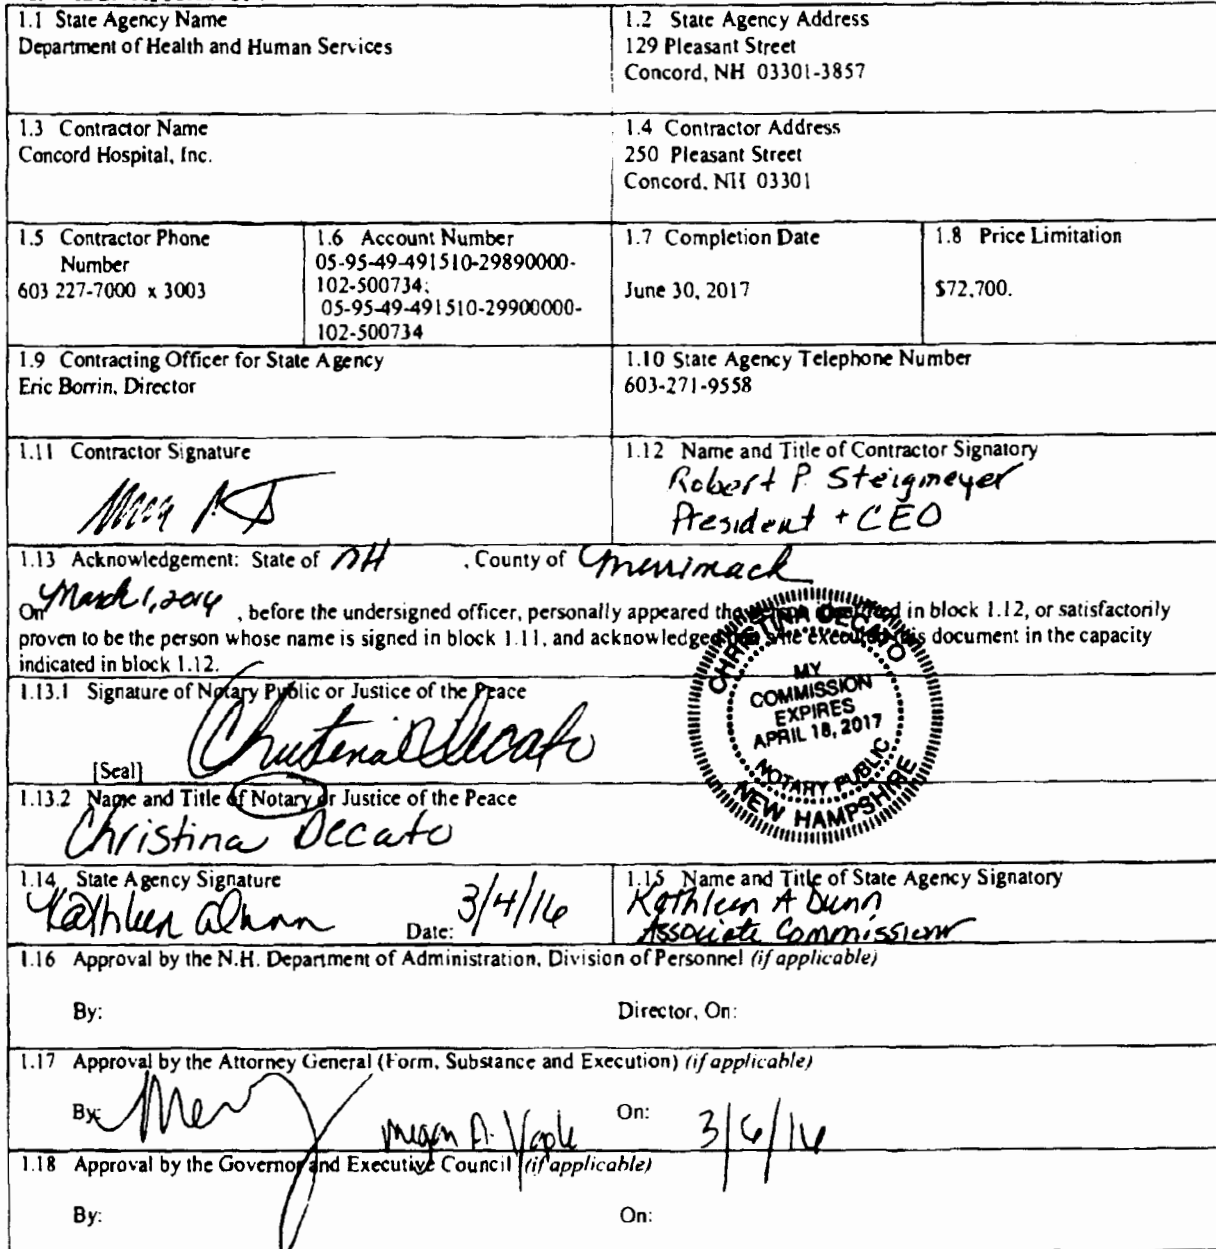 1.1 State Agency Name
Department of Health and Human Services
1.2 State Agency Address
129 Pleasant Street
Concord, NH 03301-3857
1.3 Contractor Name
Concord Hospital, Inc.
1.4 Contractor Address
250 Pleasant Street
Concord, NH 03301
1.5 Contractor Phone
Number
603 227-7000 x 3003
1.6 Account Number
05-95-49-491510-29890000-
102-500734;
05-95-49-491510-29900000-
102-500734
1.7 Completion Date
June 30, 2017
1.8 Price Limitation
$72,700.
1.9 Contracting Officer for State Agency
Eric Borrin, Director
1.10 State Agency Telephone Number
603-271-9558
1.11 Contractor Signature
1.12 Name and Title of Contractor Signatory
Robert P. Steigmeyer
President + CEO
1.13 Acknowledgement: State of NH , County of Merrimack
On March 1, 2016 , before the undersigned officer, personally appeared the person identified in block 1.12, or satisfactorily
proven to be the person whose name is signed in block 1.11, and acknowledged that s/he executed this document in the capacity
indicated in block 1.12.
1.13.1 Signature of Notary Public or Justice of the Peace
Christina Decato
[Seal]
CHRISTINA DECATO
MY
COMMISSION
EXPIRES
APRIL 18, 2017
NOTARY PUBLIC
NEW HAMPSHIRE
1.13.2 Name and Title of Notary or Justice of the Peace
Christina Decato
1.14 State Agency Signature
Kathleen A Dunn
Date: 3/4/16
1.15 Name and Title of State Agency Signatory
Kathleen A Dunn
Associate Commissioner
1.16 Approval by the N.H. Department of Administration, Division of Personnel (if applicable)
By:
Director, On:
1.17 Approval by the Attorney General (Form, Substance and Execution) (if applicable)
By: Megan A. Yaple
On: 3/6/16
1.18 Approval by the Governor and Executive Council (if applicable)
By:
On: